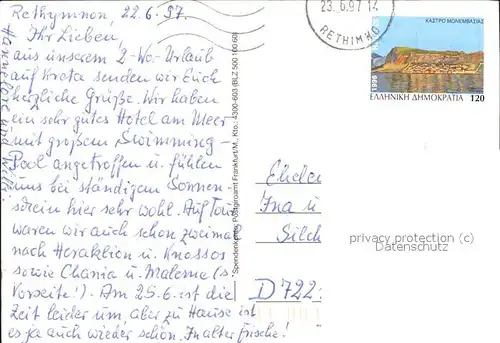 Rethymnon, 22.6.97.
Ihr Lieben
aus unserem 2-Wo.-Urlaub
auf Kreta senden wir Euch
herzliche Grüße. Wir haben
ein sehr gutes Hotel am Meer
mit großem Swimming-
Pool angetroffen u. fühlen
uns bei ständigem Sonnen-
schein hier sehr wohl. Auf Tour
waren wir auch schon zweimal
nach Heraklion u. Knossos
sowie Chania u. Maleme (s.
Vorseite!). Am 25.6. ist die
Zeit leider um, aber zu Hause ist
es ja auch wieder schön. In alter Frische!
Hannelore und
Spendenkonto: Postgiroamt Frankfurt/M., Kto.: 4300-603 (BLZ 500 100 60)
23.6.97 14
RETHIMNO
ΚΑΣΤΡΟ ΜΟΝΕΜΒΑΣΙΑΣ
1996
ΕΛΛΗΝΙΚΗ ΔΗΜΟΚΡΑΤΙΑ 120
Ina u
D 722
privacy protection (c)
Datenschutz